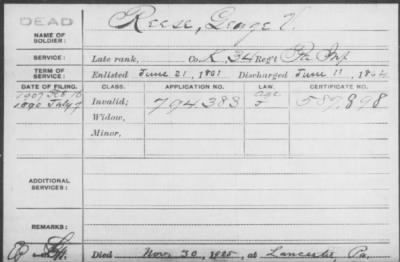 DEAD
Reese, George V.
NAME OF SOLDIER:
SERVICE: Late rank, Co. K, 34 Reg't Pa Inf
TERM OF SERVICE: Enlisted June 21, 1861 Discharged June 11, 1864
DATE OF FILING. CLASS. APPLICATION NO. LAW. CERTIFICATE NO.
1907 Feb 16 Age
1890 July 7 Invalid; 794383 F 587,898
Widow,
Minor,
ADDITIONAL SERVICES:
REMARKS:
Died Nov. 30, 1925, at Lancaster, Pa.